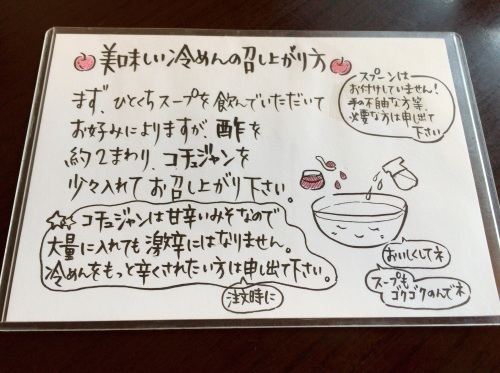 美味しい冷めんの召し上がり方
スプーンは
お付けしていません!
手の不自由な方等、
必要な方は申し出て
下さい
まず、ひとくちスープを飲んでいただいて
お好みによりますが、酢を
約2まわり、コチュジャンを
少々入れてお召し上がり下さい。
コチュジャンは甘辛いみそなので
大量に入れても激辛にはなりません。
冷めんをもっと辛くされたい方は申し出て下さい。
注文時に
おいしくしてネ
スープも
ゴクゴクのんでネ